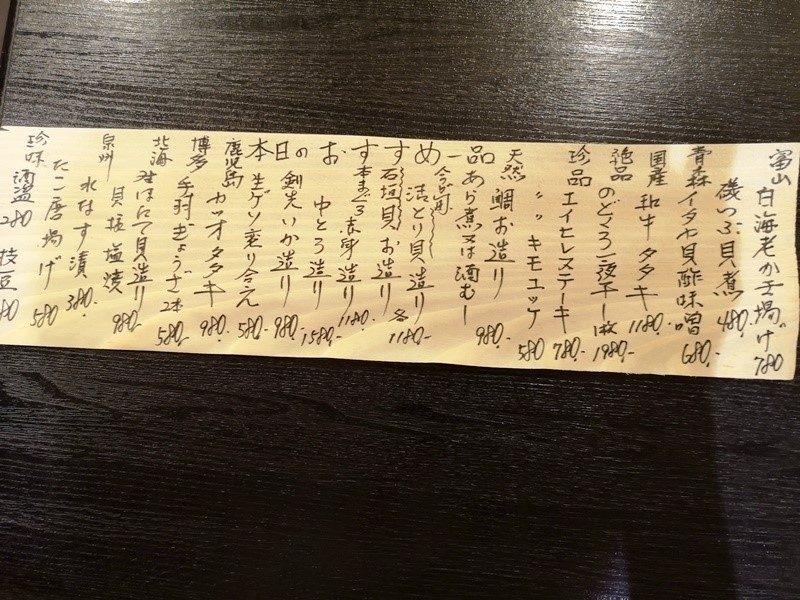 本日のおすすめ一品
富山 白海老かき揚げ 780
磯つぶ貝煮 480.
青森 イタヤ貝酢味噌 680.
国産 和牛タタキ 1180.
絶品 のどくろ一夜干し1枚 1980-
珍品 エイヒレステーキ 780.
〃 〃 キモユッケ 580
天然 鯛お造り 980.
あら煮又は酒むし
活とり貝造り 各1180-
石垣貝お造り
本まぐろ 赤身造り 1180.
中とろ造り 1580-
剣先いか造り 980.
生ゲソ変り合え 580.
鹿児島 カツオタタキ 980.
博多 手羽ぎょうざ2本 580-
北海 活ほたて貝造り 980-
貝柱塩焼
泉州 水なす漬 380.
たこ唐揚げ 580
珍味 酒盗 280
枝豆 80